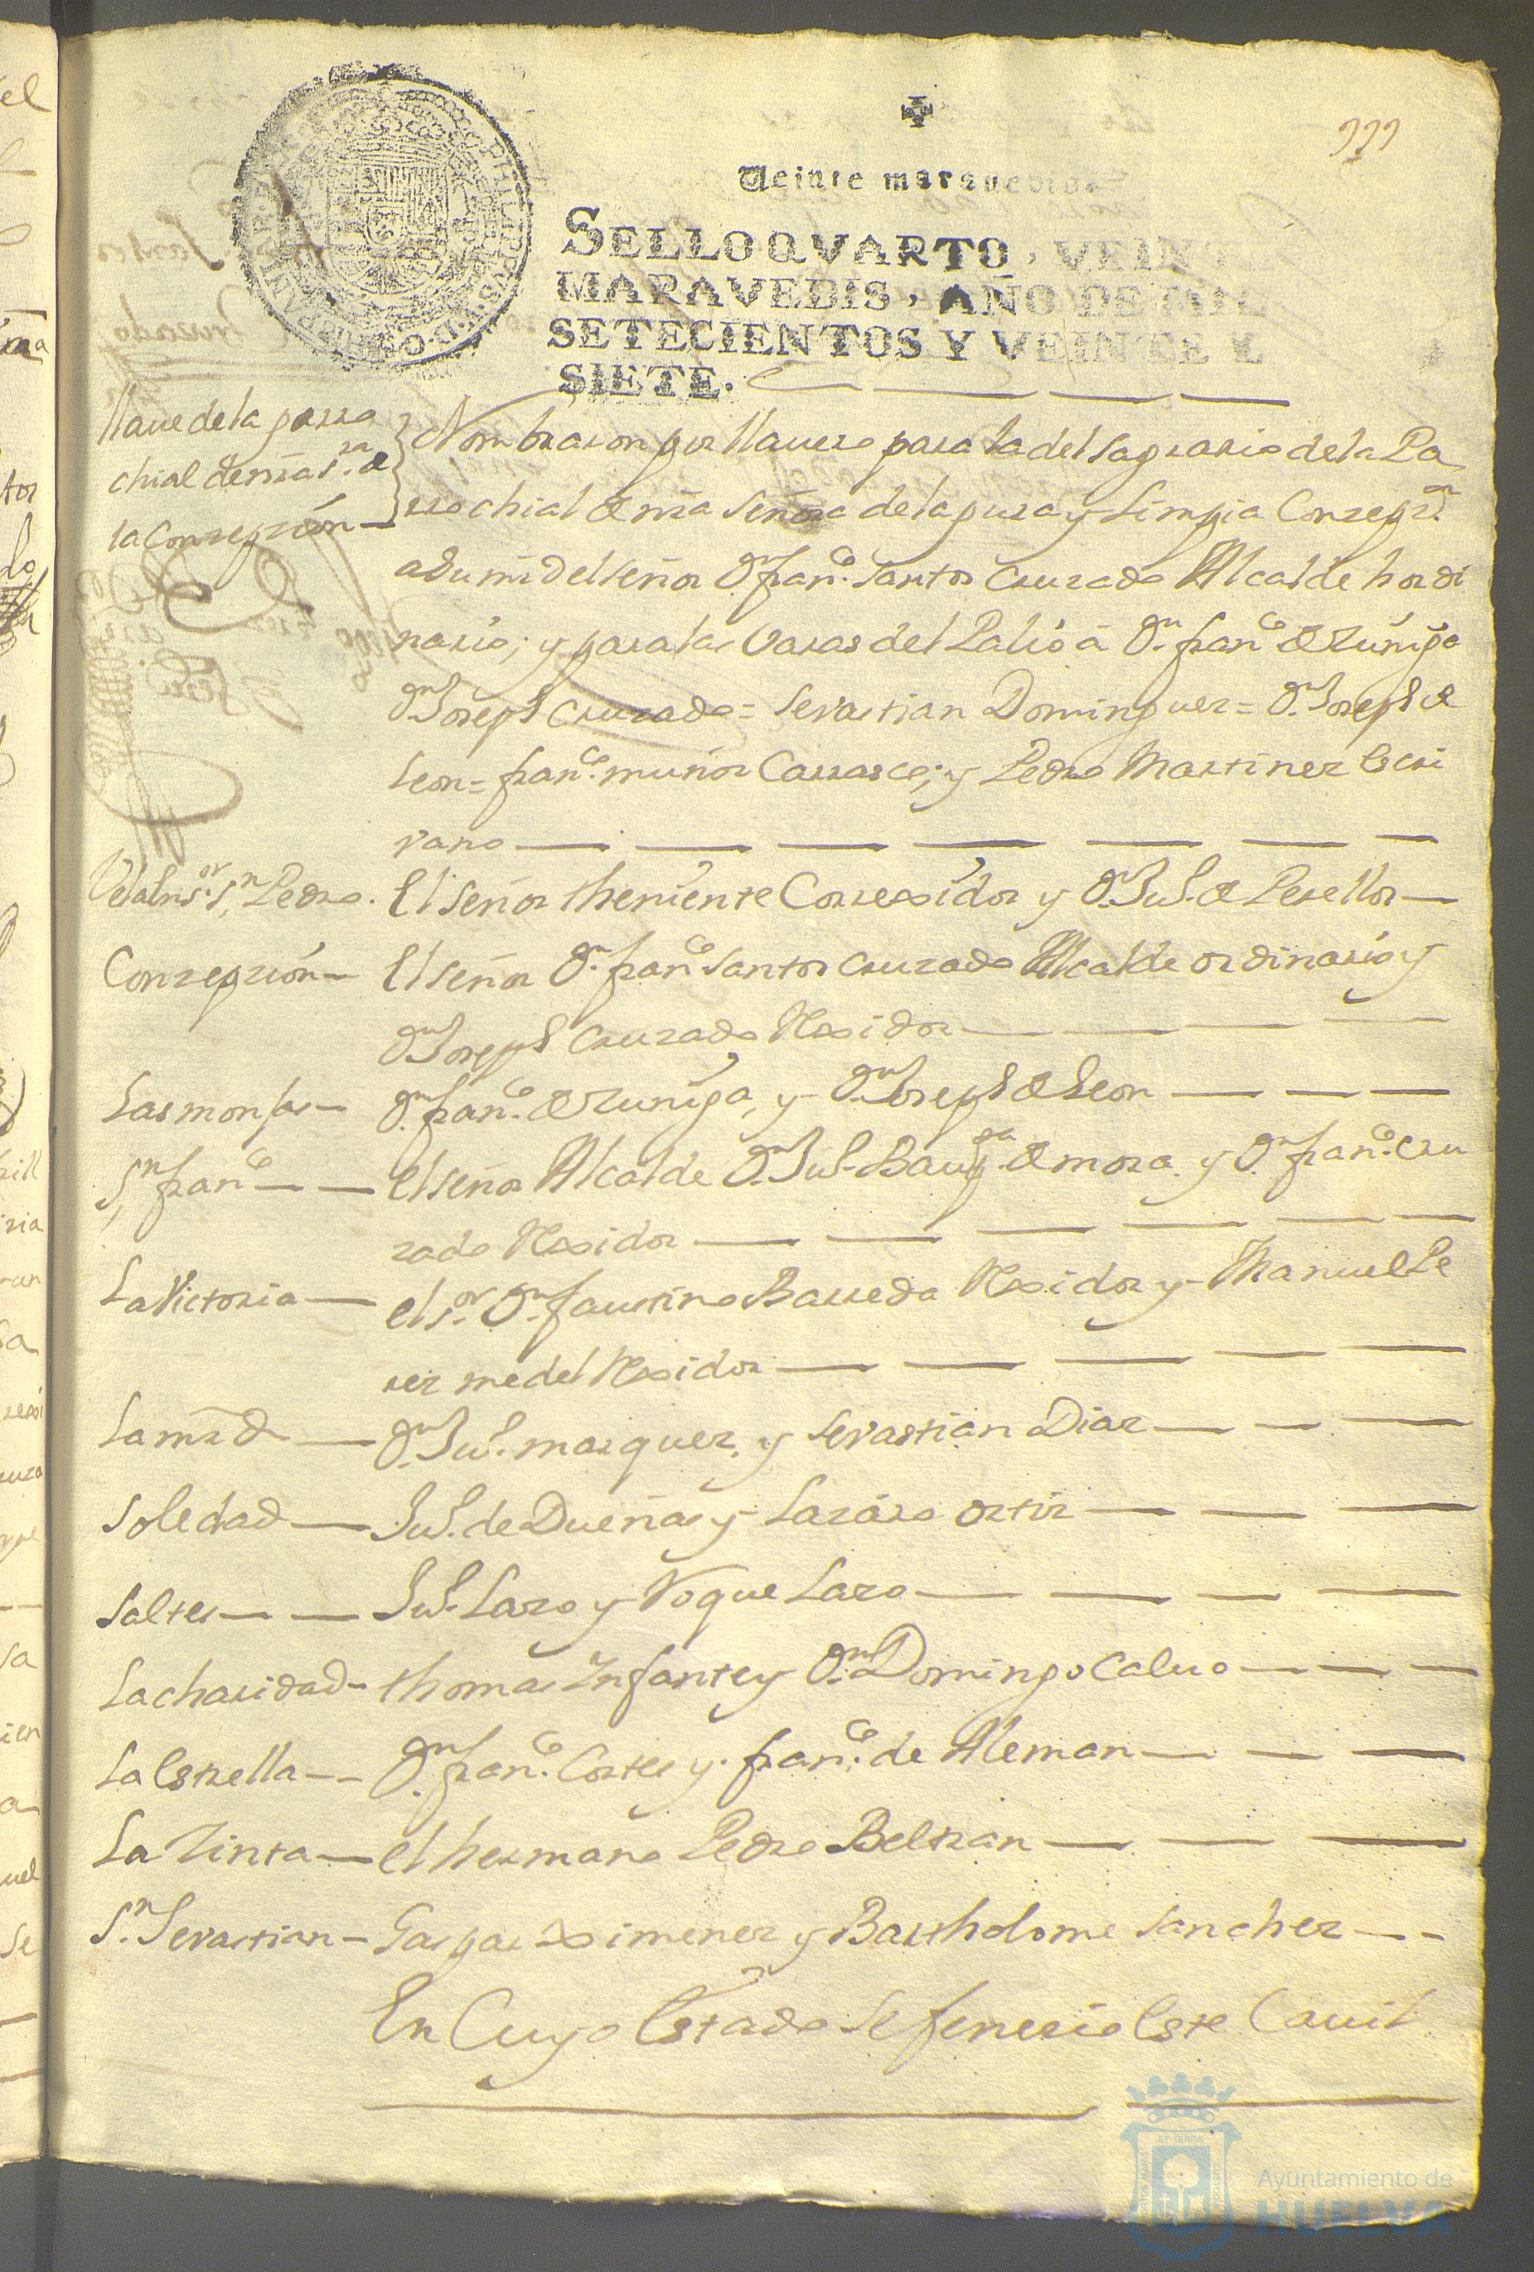 999
Veinte maravedis
SELLO QVARTO, VEINTE
MARAVEDIS, AÑO DE MIL
SETECIENTOS Y VEINTE Y
SIETE.
llaue de la parro
chial de nra s.ra de
la Conzepzión
Nombraron por llauero para la del sagrario de la Pa
rrochial de nra Señora de la pura y Limpia Conzepz.on
a su md el señor Dn. fran.co santos cruzado Alcalde hordi
nario; y para las Varas del Palio á Dn. fran.co de zuñiga
Dn. Joseph cruzado = Sevastian Dominguez = Dn. Joseph de
Leon = fran.co muñoz Carrasco; y Pedro Martinez Escri
vano
Velal ns.or Sn Pedro. El señor theniente Correxidor y Dn. Ju.o de Perellos
Conzepzión El señor Dn. fran.co santos cruzado Alcalde ordinario y
Dn. Joseph cruzado Rexidor
Las monjas Dn. fran.co de zuñiga, y Dn. Joseph de Leon
Sn fran.co El señor Alcalde Dn. Ju.o Baup.ta de mora y Dn. fran.co cru
zado Rexidor
La Victoria el s.or Dn faustino Barreda Rexidor y Manuel Pe
rez medel Rexidor
La mrd Dn. Ju.o marquez, y Sevastian Diaz
Soledad Ju.o de Dueñas y Lazáro ortiz
Saltes Ju.o Lazo y Roque Lazo
La charidad thomas Infante y Dn. Domingo Calvo
La Estrella Dn. fran.co Cortes y fran.co de Aleman
La Zinta el hermano Pedro Beltran
Sn. Sevastian Gaspar Ximenez y Bartholome sanchez
En Cuyo Estado se fenecio Este Cauil
Ayuntamiento de
HUELVA